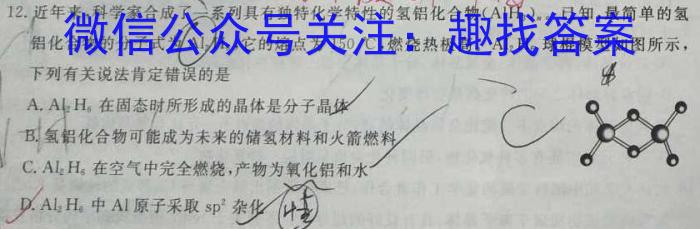 12. 近年来,科学家合成了一系列具有独特化学特性的氢铝化合物(AlH₃)ₙ。已知,最简单的氢
铝化
它的熔点为150℃,燃烧热极
图所示,
微信公众号关注:趣找答案
下列有关说法肯定错误的是
A. Al₂H₆ 在固态时所形成的晶体是分子晶体
B. 氢铝化合物可能成为未来的储氢材料和火箭燃料
C. Al₂H₆ 在空气中完全燃烧,产物为氧化铝和水
D. Al₂H₆ 中 Al 原子采取 sp² 杂化